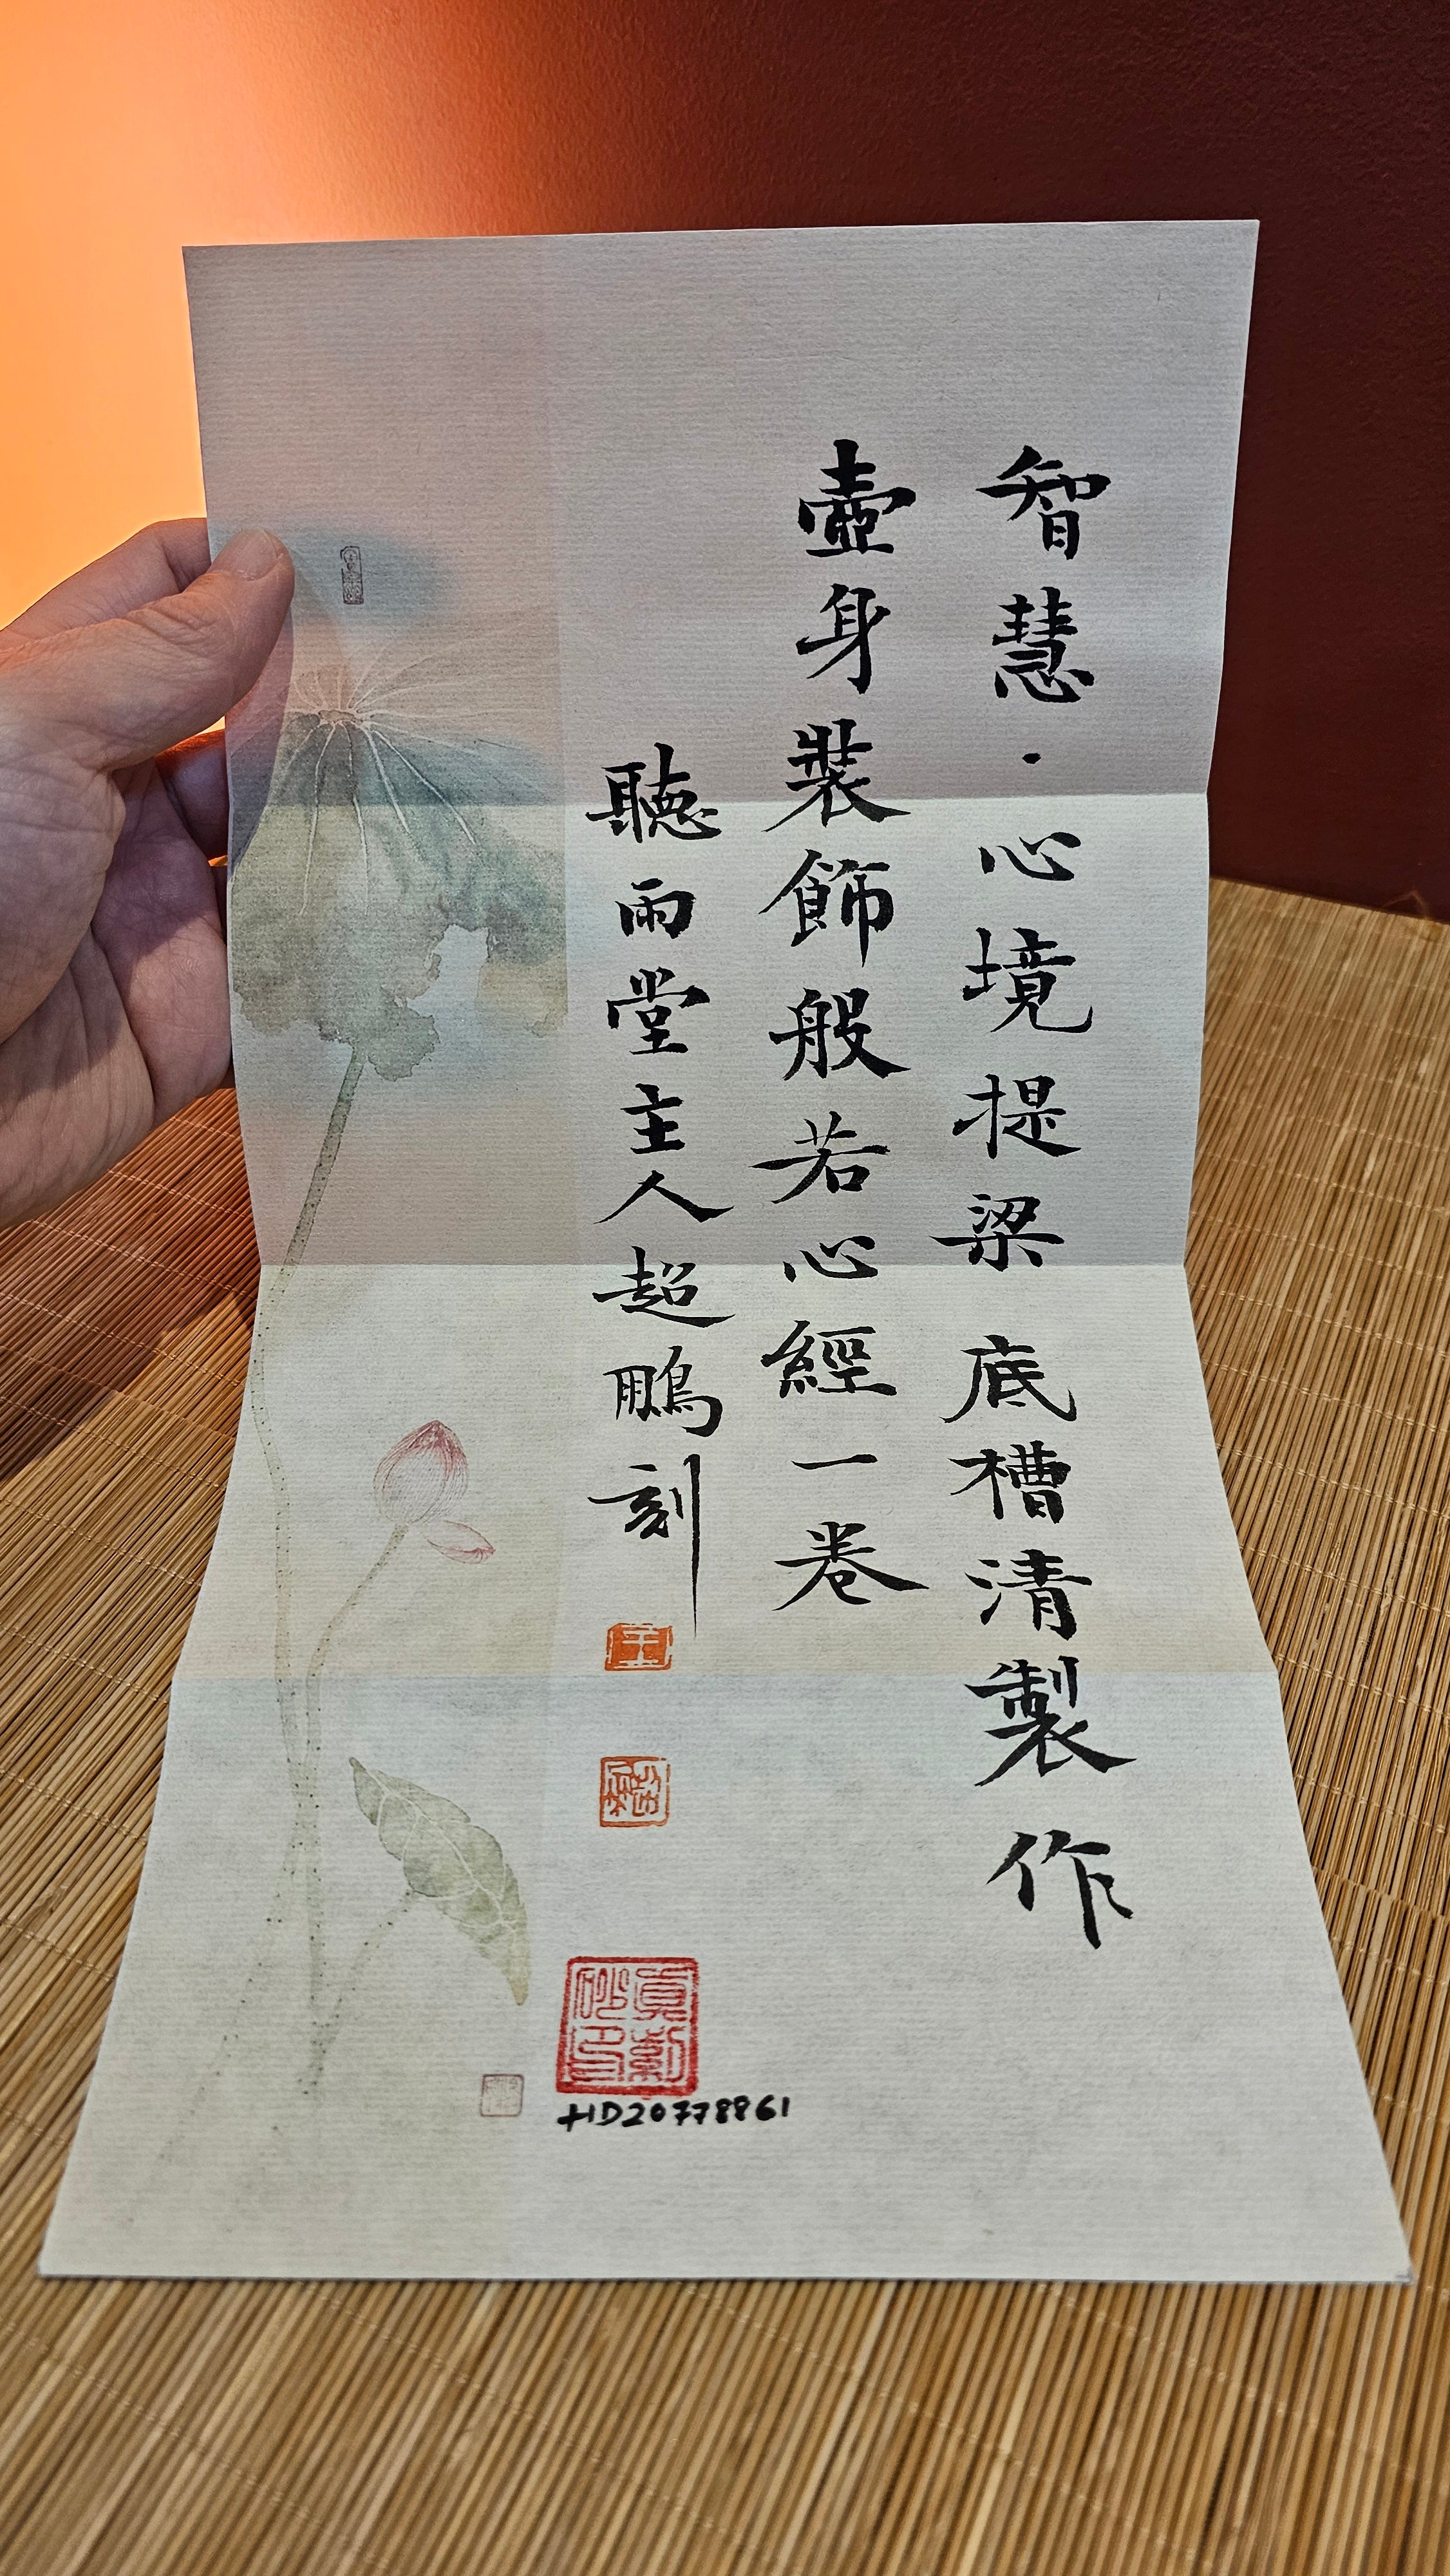 智慧·心境提梁 底槽清製作
壺身裝飾般若心經一卷
聽雨堂主人超鵬刻
王
真紫砂印
HD20778861